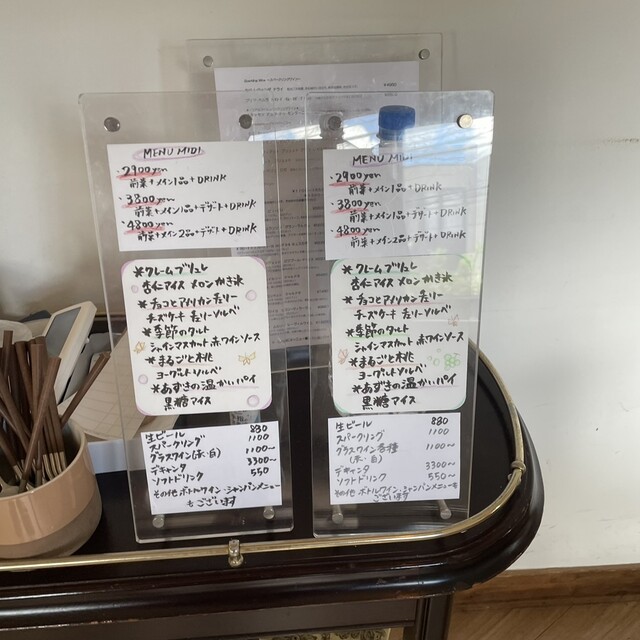 MENU MIDI
・2900yen
前菜+メイン1品+DRINK
・3800yen
前菜+メイン1品+デザート+DRINK
・4800yen
前菜+メイン2品+デザート+DRINK
*クレームブリュレ
杏仁アイス メロンかき氷
*チョコとアメリカンチェリー
チーズケーキ チェリーソルベ
*季節のタルト
シャインマスカット 赤ワインソース
*まるごと桃
ヨーグルトソルベ
*あずきの温かいパイ
黒糖アイス
生ビール 880
スパークリング 1100
グラスワイン(赤・白) 1100~
デキャンタ 3300~
ソフトドリンク 550
その他 ボトルワイン・シャンパンメニュー
もございます
MENU MIDI
・2900yen
前菜+メイン1品+DRINK
・3800yen
前菜+メイン1品+デザート+DRINK
・4800yen
前菜+メイン2品+デザート+DRINK
*クレームブリュレ
杏仁アイス メロンかき氷
*チョコとアメリカンチェリー
チーズケーキ チェリーソルベ
*季節のタルト
シャインマスカット 赤ワインソース
*まるごと桃
ヨーグルトソルベ
*あずきの温かいパイ
黒糖アイス
生ビール 880
スパークリング 1100
グラスワイン各種 1100~
(赤・白)
デキャンタ 3300~
ソフトドリンク 550~
その他 ボトルワイン・シャンパンメニューも
ございます